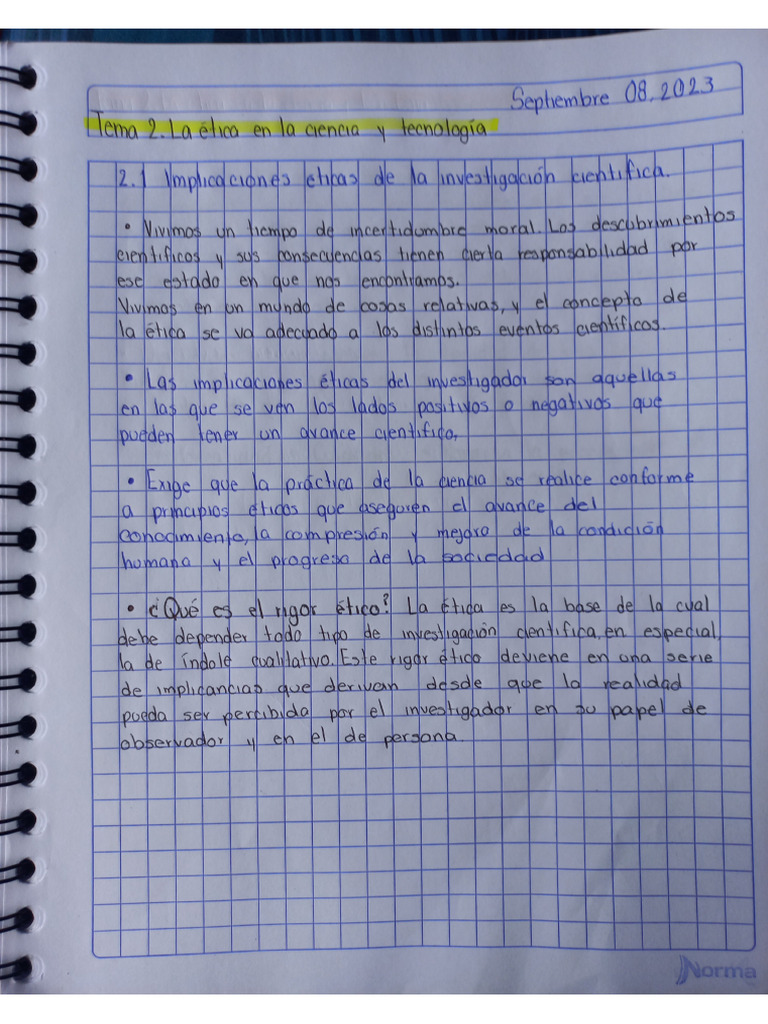 Septiembre 08, 2023
Tema 2. La ética en la ciencia y tecnología
2.1 Implicaciones eticas de la investigación cientifica.
• Vivimos un tiempo de incertidumbre moral. Los descubrimientos
cientificos y sus consecuencias tienen cierta responsabilidad por
ese estado en que nos encontramos.
Vivimos en un mundo de cosas relativas, y el concepto de
la ética se va adecuado a los distintos eventos científicos.
• Las implicaciones éticas del investigador son aquellas
en las que se ven los lados positivos o negativos que
pueden tener un avance cientifico.
• Exige que la práctica de la ciencia se realice conforme
a principios éticos que aseguren el avance del
conocimiento, la compresión y mejora de la condición
humana y el progreso de la sociedad
• ¿Qué es el rigor ético? La ética es la base de la cual
debe depender todo tipo de investigación cientifica, en especial,
la de índole cualitativo. Este rigor ético deviene en una serie
de implicancias que derivan desde que la realidad
pueda ser percibida por el investigador en su papel de
observador y en el de persona.
Norma